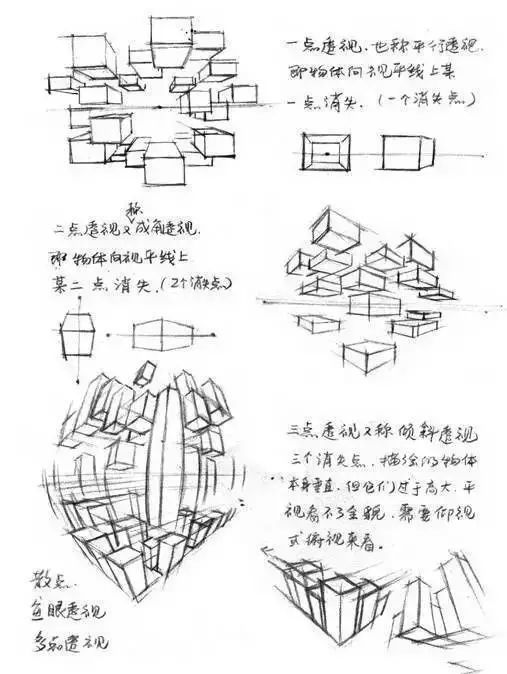 一点透视，也称平行透视，
即物体向视平线上某
一点消失．（一个消失点）
二点透视又称成角透视．
即物体向视平线上
某二点消失．（2个消失点）
三点透视又称倾斜透视
三个消失点．描绘的物体
本身垂直．但它们过于高大．平
视看不了全貌．需要仰视
式俯视来看。
散点．
鱼眼透视
多点透视